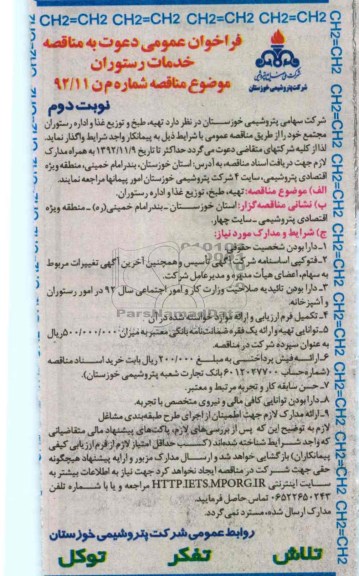 CH2=CH2 CH2=CH2 CH2=CH2 CH2=CH2 CH2=CH2 CH2=CH2
فراخوان عمومی دعوت به مناقصه
خدمات رستوران
موضوع مناقصه شماره م ن ۹۲/۱۱
شرکت پتروشیمی خوزستان
نوبت دوم
شرکت سهامی پتروشیمی خوزستان در نظر دارد تهیه، طبخ و توزیع غذا و اداره رستوران
مجتمع خود را از طریق مناقصه عمومی با شرایط ذیل به پیمانکار واجد شرایط واگذار نماید.
لذا از کلیه شرکتهای متقاضی دعوت می گردد حداکثر تا تاریخ ۱۳۹۲/۱۱/۹ به همراه مدارک
لازم جهت دریافت اسناد مناقصه، به آدرس: استان خوزستان، بندرامام خمینی، منطقه ویژه
اقتصادی پتروشیمی، سایت ۴ شرکت پتروشیمی خوزستان امور پیمانها مراجعه نمایند.
الف) موضوع مناقصه: تهیه، طبخ، توزیع غذا و اداره رستوران.
ب) نشانی مناقصه گزار: استان خوزستان - بندرامام خمینی(ره) - منطقه ویژه
اقتصادی پتروشیمی - سایت چهار.
ج) شرایط و مدارک مورد نیاز:
۱- دارا بودن شخصیت حقوقی
۲- فتوکپی اساسنامه شرکت، آگهی تأسیس و همچنین آخرین آگهی تغییرات مربوط
به سهام، اعضای هیأت مدیره و مدیرعامل شرکت.
۳- دارا بودن تائیدیه صلاحیت وزارت کار و امور اجتماعی سال ۹۲ در امور رستوران
و آشپزخانه.
۴- تکمیل فرم ارزیابی و ارائه موارد خواسته شده در آن
۵- توانایی تهیه و ارائه یک فقره ضمانت نامه بانکی معتبر به میزان ۵۰۰/۰۰۰/۰۰۰ ریال
به عنوان سپرده شرکت در مناقصه.
۶- ارائه فیش پرداختی به مبلغ ۲۰۰/۰۰۰ ریال بابت خرید اسناد مناقصه
(شماره حساب ۶۰۱۲۰۲۷۷۰۰ بانک تجارت شعبه پتروشیمی خوزستان).
۷- حسن سابقه کار و تجربه مرتبط و معتبر.
۸- دارا بودن توانایی کافی مالی و نیروی متخصص با تجربه.
۹- ارائه مدارک لازم جهت اطمینان از اجرای طرح طبقه بندی مشاغل
لازم به توضیح این که پس از بررسی های لازم، پاکت های پیشنهاد مالی متقاضیانی
که واجد شرایط شناخته شده اند (کسب حداقل امتیاز لازم از فرم ارزیابی کیفی
پیمانکاران) بازگشایی خواهد شد و ارسال مدارک مزبور و ارایه پیشنهاد هیچگونه
حقی جهت شرکت در مناقصه ایجاد نخواهد کرد جهت نیاز به اطلاعات بیشتر به
سایت اینترنتی HTTP.IETS.MPORG.IR مراجعه و یا با شماره تلفن
۰۶۵۲۲۶۵۰۲۴۳ تماس حاصل فرمایید.
مدارک ارسال شده، مسترد نمی گردد.
روابط عمومی شرکت پتروشیمی خوزستان
تلاش تفکر توکل